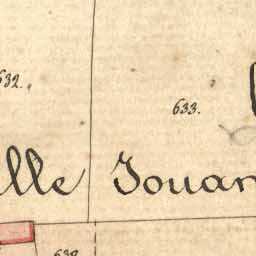 632.
633.
lle Jouan
638